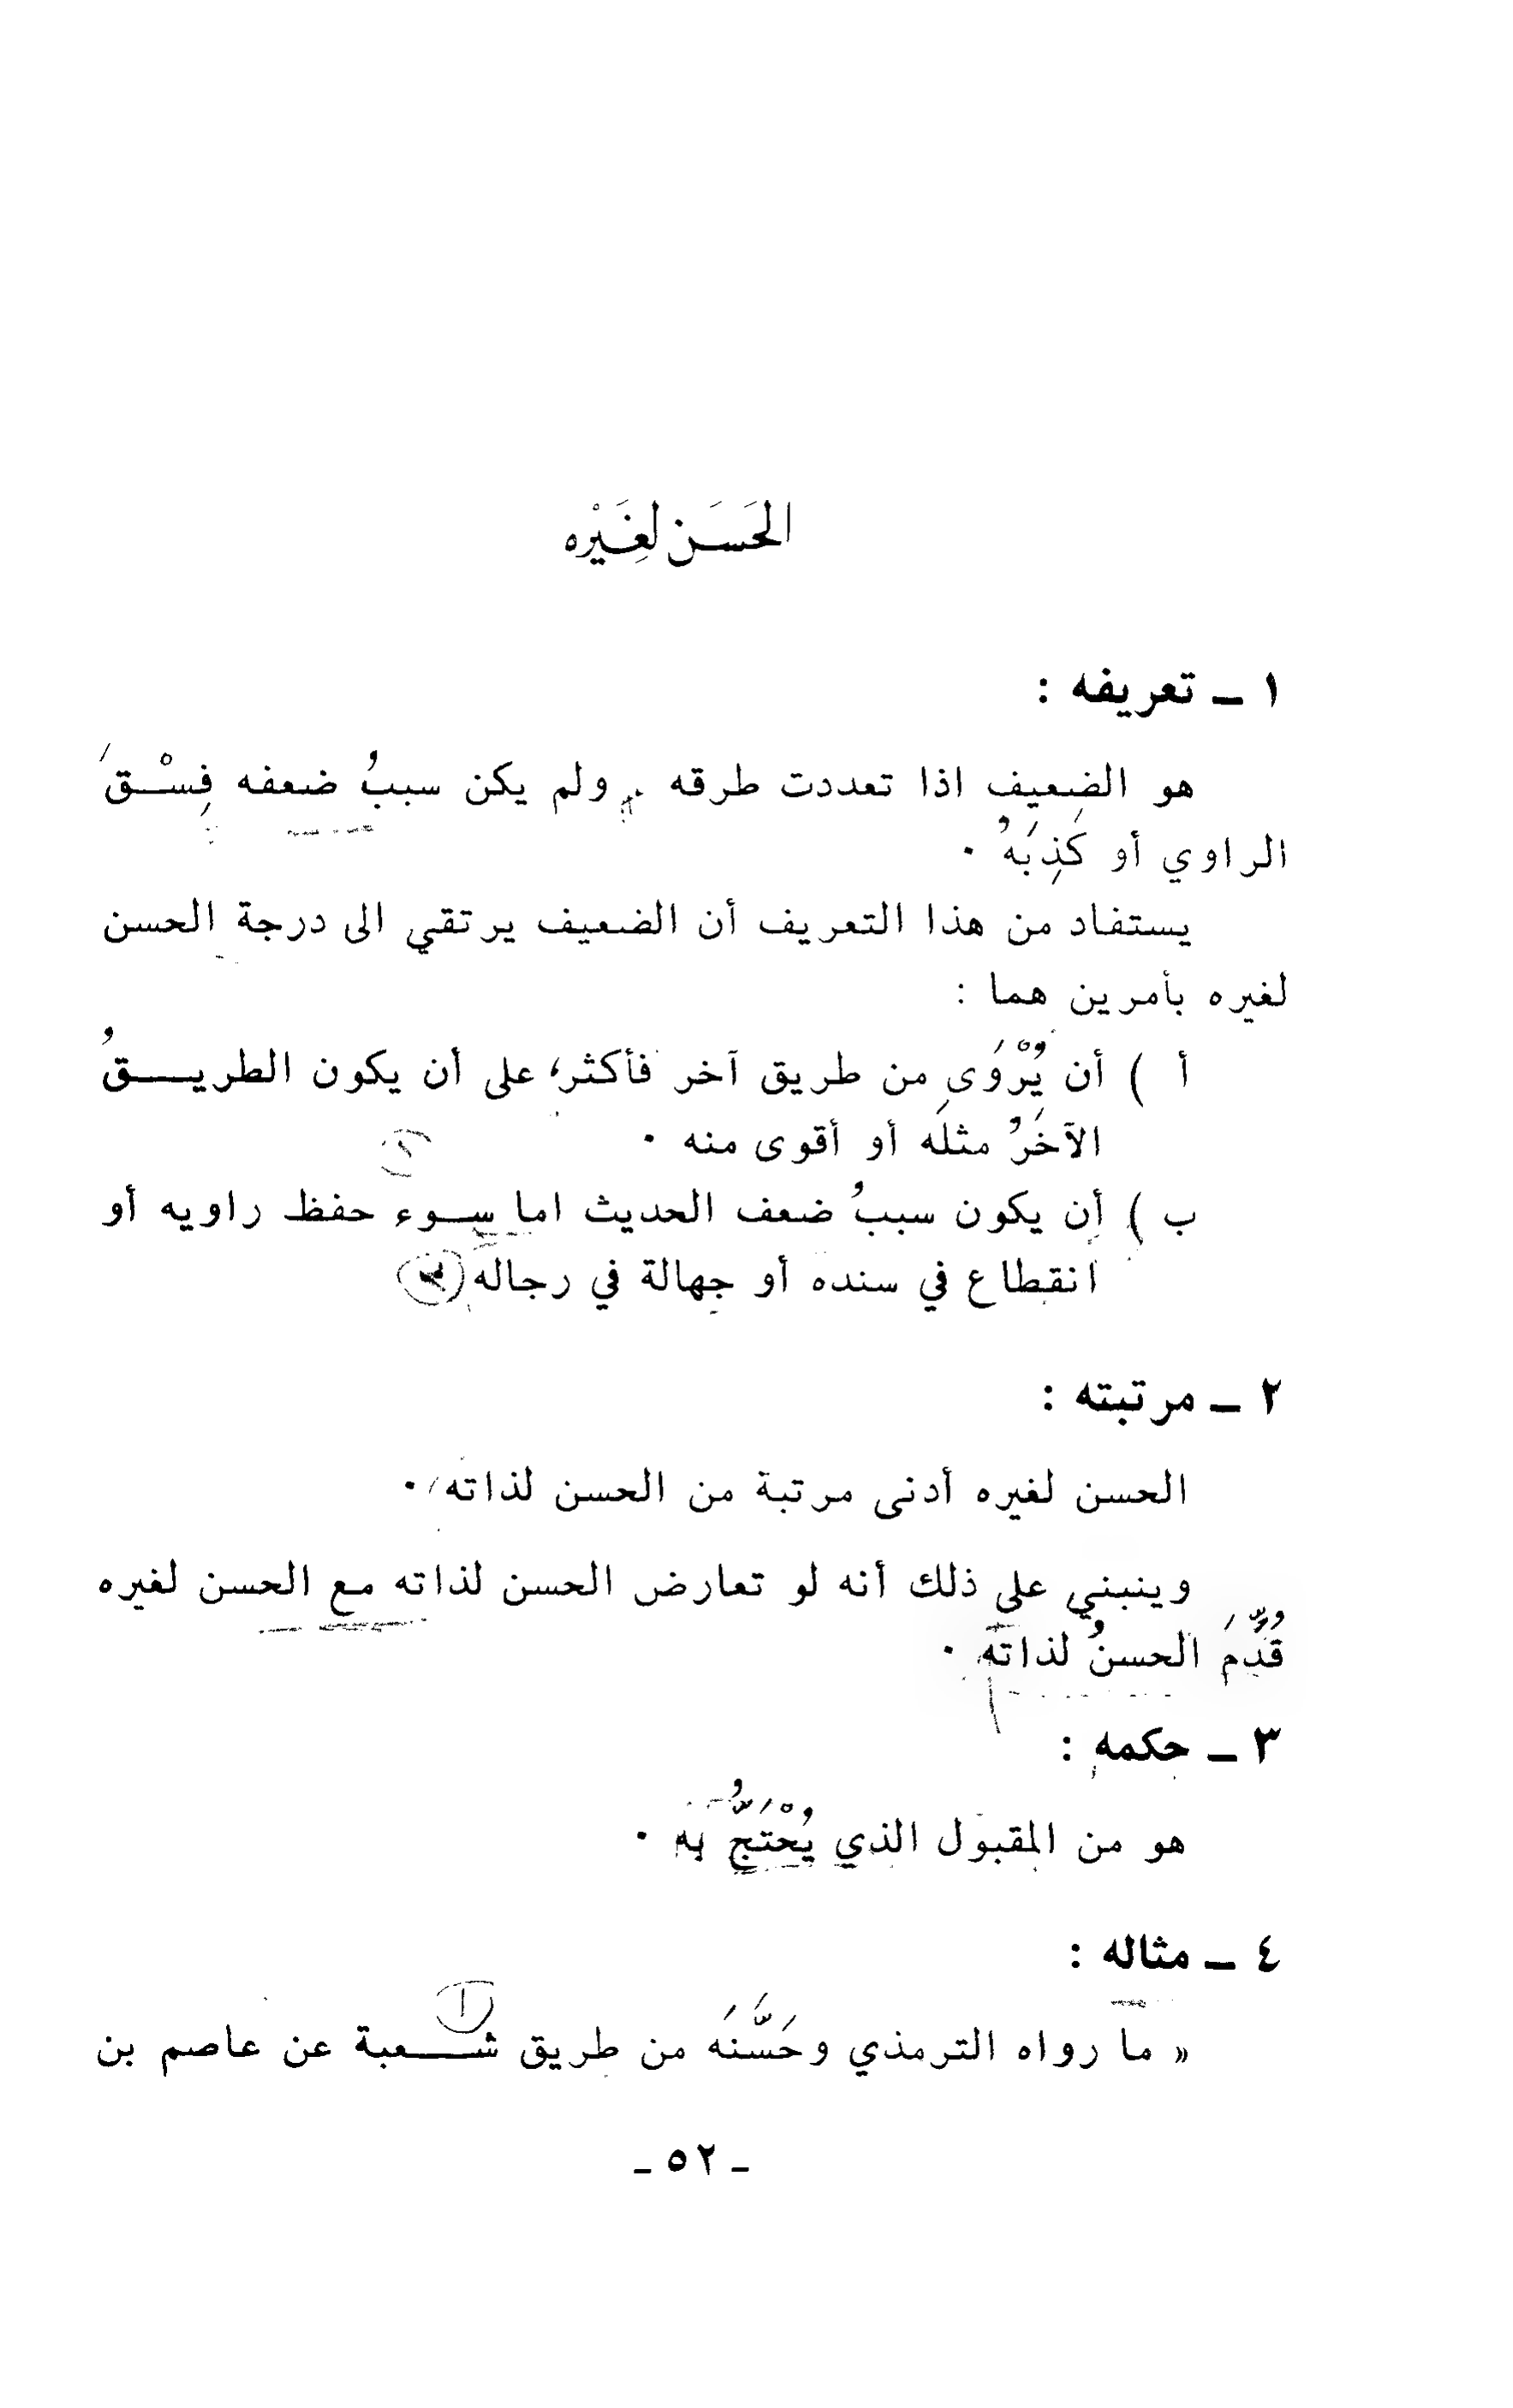 الحَسَن لغَيْره
١ ــ تعريفه :
هو الضعيف اذا تعددت طرقه ، ولم يكن سببُ ضعفه فِسْــقَ
الراوي أو كَذِبَهُ .
يستفاد من هذا التعريف أن الضعيف يرتقي الى درجة الحسن
لغيره بأمرين هما :
أ ) أن يُرْوَى من طريق آخر فأكثر، على أن يكون الطريـــقُ
الآخَرُ مثلَه أو أقوى منه .
ب ) أن يكون سببُ ضعف الحديث اما ســوء حفظ راويه أو
انقطاع في سنده أو جهالة في رجاله
٢ ــ مرتبته :
الحسن لغيره أدنى مرتبة من الحسن لذاته .
وينبني على ذلك أنه لو تعارض الحسن لذاته مع الحسن لغيره
قُدِّمَ الحسنُ لذاته .
٣ ــ حكمه :
هو من المقبول الذي يُحْتَجُّ به .
٤ ــ مثاله :
« ما رواه الترمذي وحَسَّنَه من طريق شـــعبة عن عاصم بن
ـ ٥٢ ـ